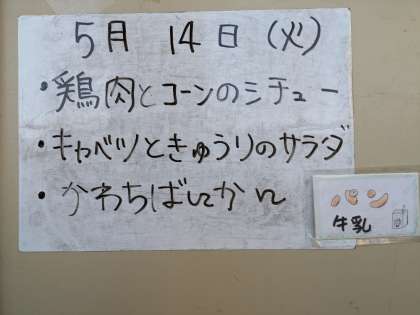 5月 14日 (火)
・鶏肉とコーンのシチュー
・キャベツときゅうりのサラダ
・かわちばんかん
パン
牛乳